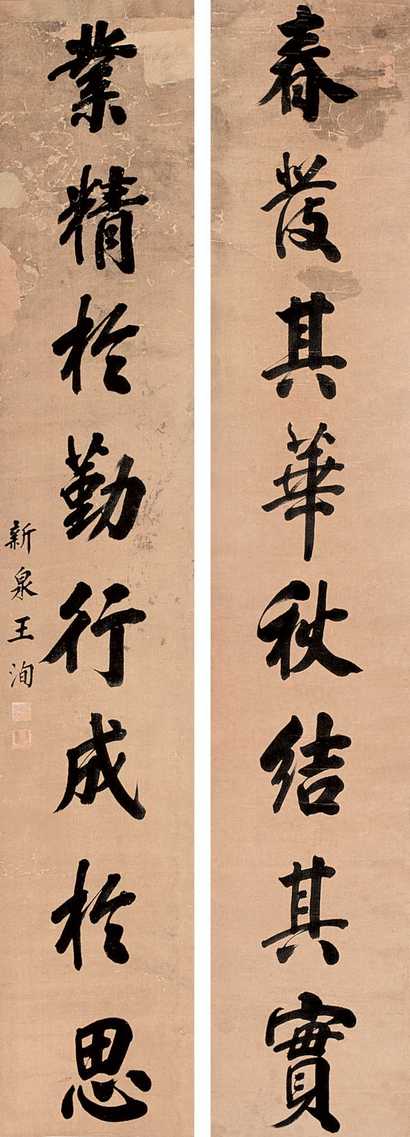 春發其華秋結其實
業精於勤行成於思
新泉王洵